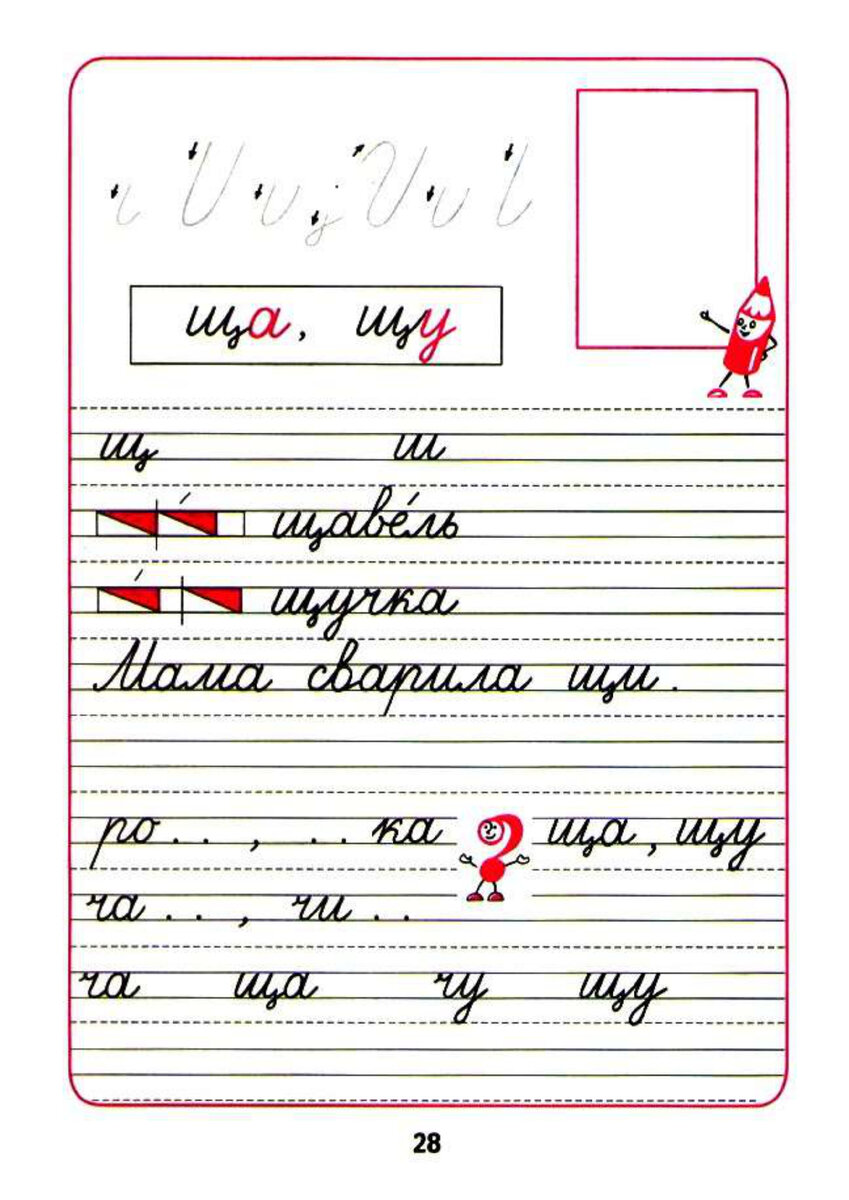 ща, щу
щ ш
щаве́ль
щучка
Мама сварила щи.
ро . . , . . ка ща, щу
ча . . , чи . .
ча ща чу щу
28